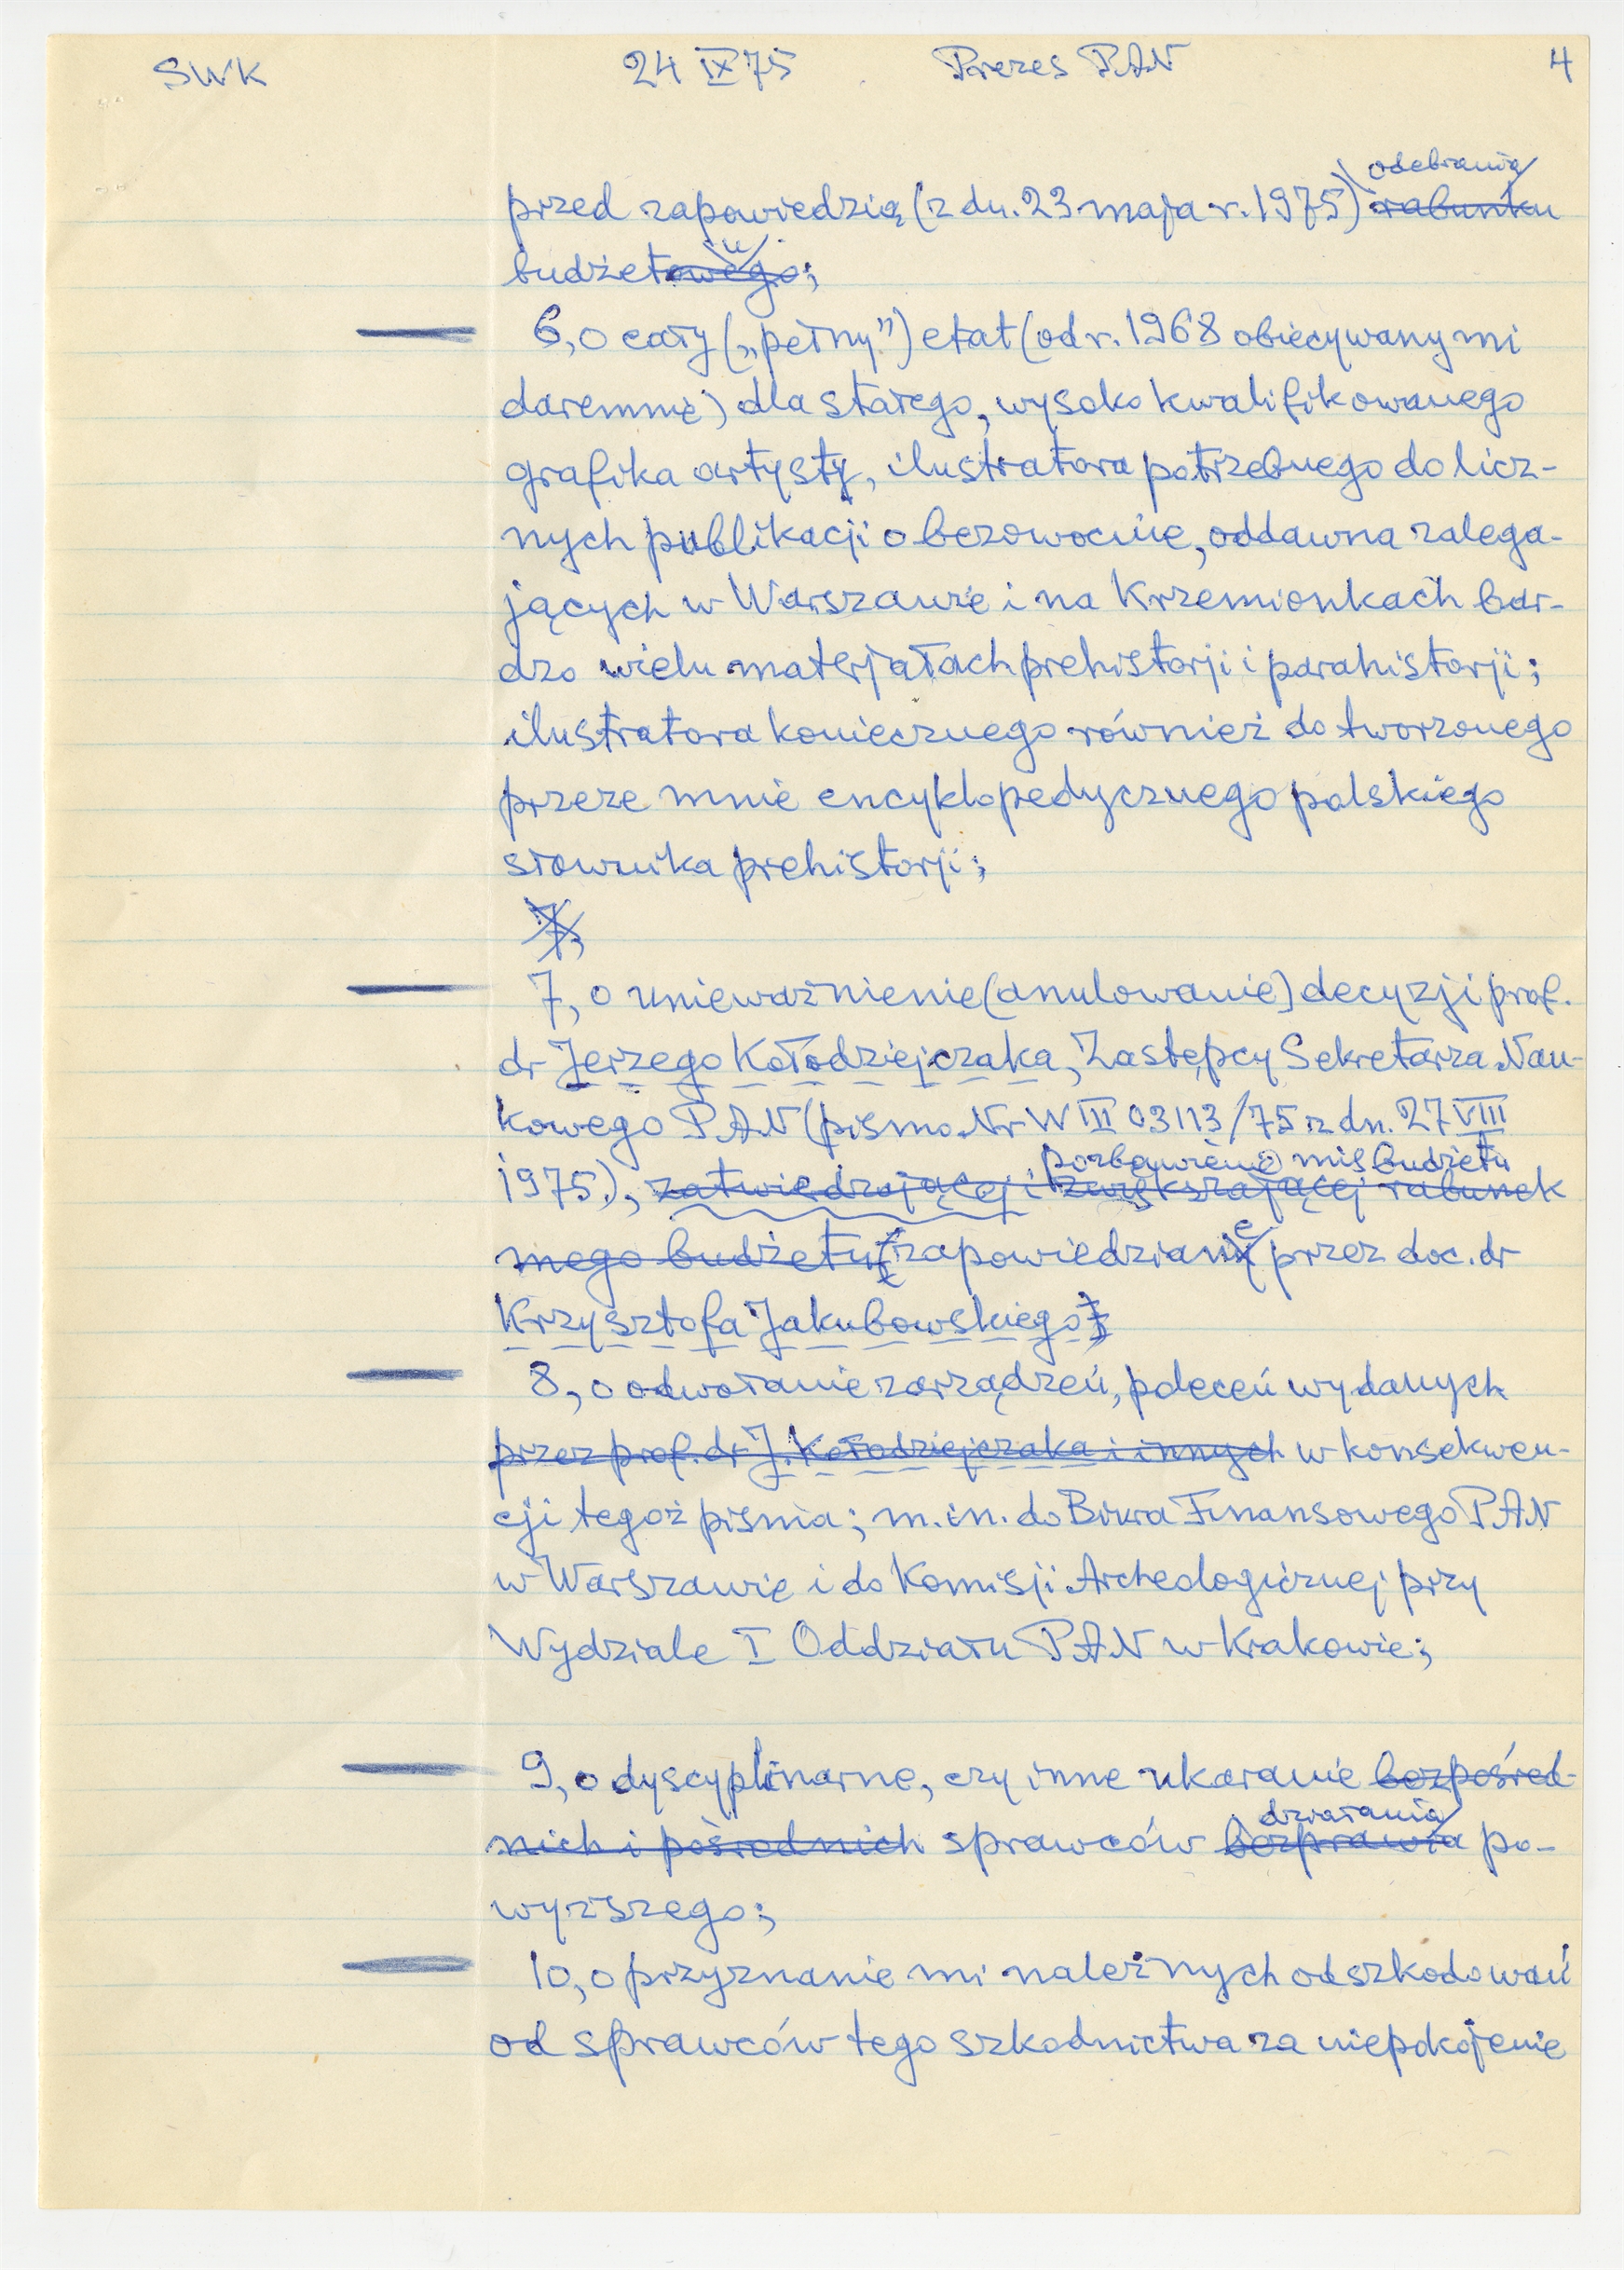 SWK 24 IX 75 Prezes PAN 4
odebrania
przed zapowiedzią (z dn. 23 maja r. 1975) rabunku
u
budżetowego;
6, o cały („pełny”) etat (od r. 1968 obiecywany mi
daremnie) dla starego, wysoko kwalifikowanego
grafika artysty, ilustratora potrzebnego do licz-
nych publikacji o bezowocnie, oddawna zalega-
jących w Warszawie i na Krzemionkach bar-
dzo wielu materjałach prehistorji i parahistorji;
ilustratora koniecznego również do tworzonego
przeze mnie encyklopedycznego polskiego
słownika prehistorji;
7,
7, o unieważnienie (anulowanie) decyzji prof.
dr Jerzego Kołodziejczaka, Zastępcy Sekretarza Nau-
kowego PAN (pismo Nr W III 03113/75 z dn. 27 VIII
pozbawienie mię budżetu
1975), zatwierdzającej i zwiększającej rabunek
mego budżetu zapowiedziane przez doc. dr
Krzysztofa Jakubowskiego;
8, o odwołanie zarządzeń, poleceń wydanych
przez prof. dr J. Kołodziejczaka i innych w konsekwen-
cji tegoż pisma; m. in. do Biura Finansowego PAN
w Warszawie i do Komisji Archeologicznej przy
Wydziale I Oddziału PAN w Krakowie;
9, o dyscyplinarne, czy inne ukaranie bezpośred-
działania
nich i pośrednich sprawców bezprawia po-
wyższego;
10, o przyznanie mi należnych odszkodowań
od sprawców tego szkodnictwa za niepokojenie